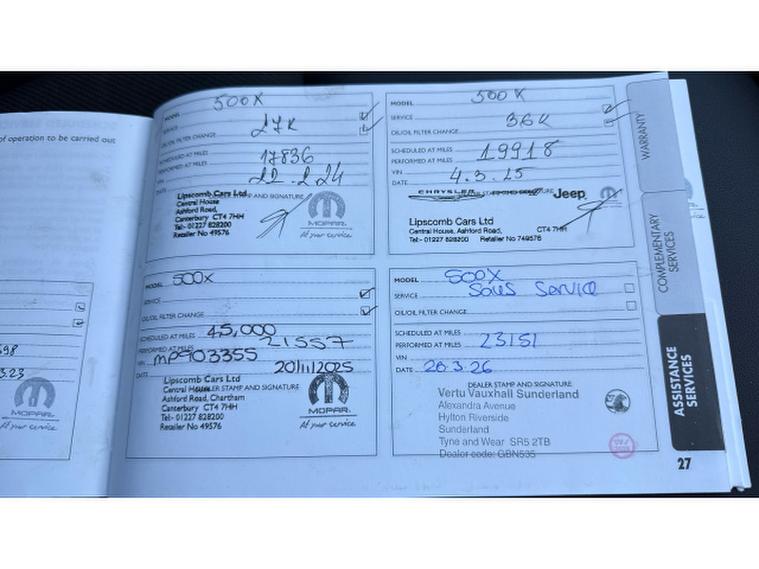 of operation to be carried out
698
3.23
MOPAR.
At your service
MODEL 500X
SERVICE 27K
OIL/OIL FILTER CHANGE
SCHEDULED AT MILES
PERFORMED AT MILES 17836
VIN
DATE 22.2.24
DEALER STAMP AND SIGNATURE
Lipscomb Cars Ltd
Central House
Ashford Road,
Canterbury CT4 7HH
Tel:- 01227 828200
Retailer No 49576
MOPAR.
At your service
MODEL 500X
SERVICE 36K
OIL/OIL FILTER CHANGE
SCHEDULED AT MILES
PERFORMED AT MILES 19918
VIN
DATE 4.3.25
CHRYSLER Jeep
Lipscomb Cars Ltd
Central House, Ashford Road, CT4 7HH
Tel:- 01227 828200 Retailer No 749576
MODEL 500X
SERVICE
OIL/OIL FILTER CHANGE
SCHEDULED AT MILES 45,000
PERFORMED AT MILES 21557
VIN MP903355
DATE 20/11/2025
DEALER STAMP AND SIGNATURE
Lipscomb Cars Ltd
Central House
Ashford Road, Chartham
Canterbury CT4 7HH
Tel:- 01227 828200
Retailer No 49576
MOPAR.
At your service
MODEL 500X
SERVICE Sales Service
OIL/OIL FILTER CHANGE
SCHEDULED AT MILES
PERFORMED AT MILES 23151
VIN
DATE 26.3.26
DEALER STAMP AND SIGNATURE
Vertu Vauxhall Sunderland
Alexandra Avenue
Hylton Riverside
Sunderland
Tyne and Wear SR5 2TB
Dealer code: GBN535
WARRANTY
COMPLEMENTARY
SERVICES
ASSISTANCE
SERVICES
27